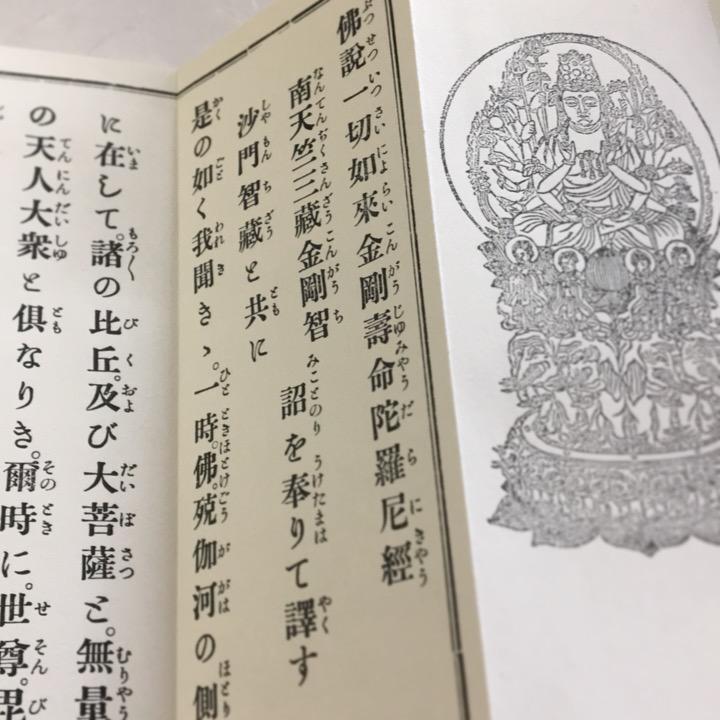 佛說一切如來金剛壽命陀羅尼經
南天竺三藏金剛智
詔を奉りて譯す
沙門智藏と共に
是の如く我聞きゝ。一時。佛。殑伽河の側
に在して。諸の比丘。及び大菩薩と。無量
の天人大衆と俱なりき。爾時に。世尊。毘